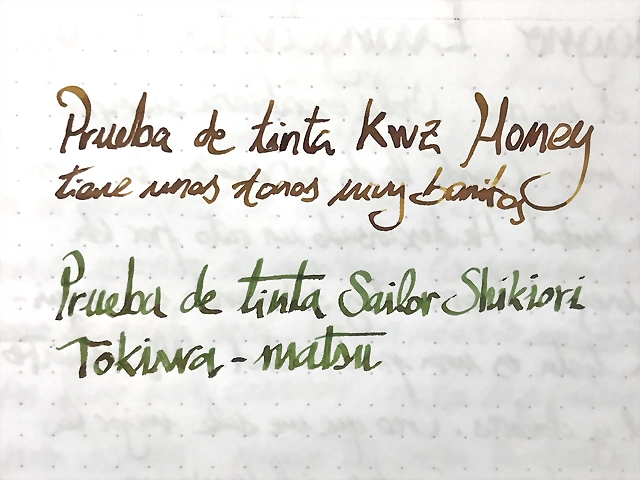 Prueba de tinta KWZ Honey
tiene unos tonos muy bonitos
Prueba de tinta Sailor Shikiori
Tokiwa-matsu